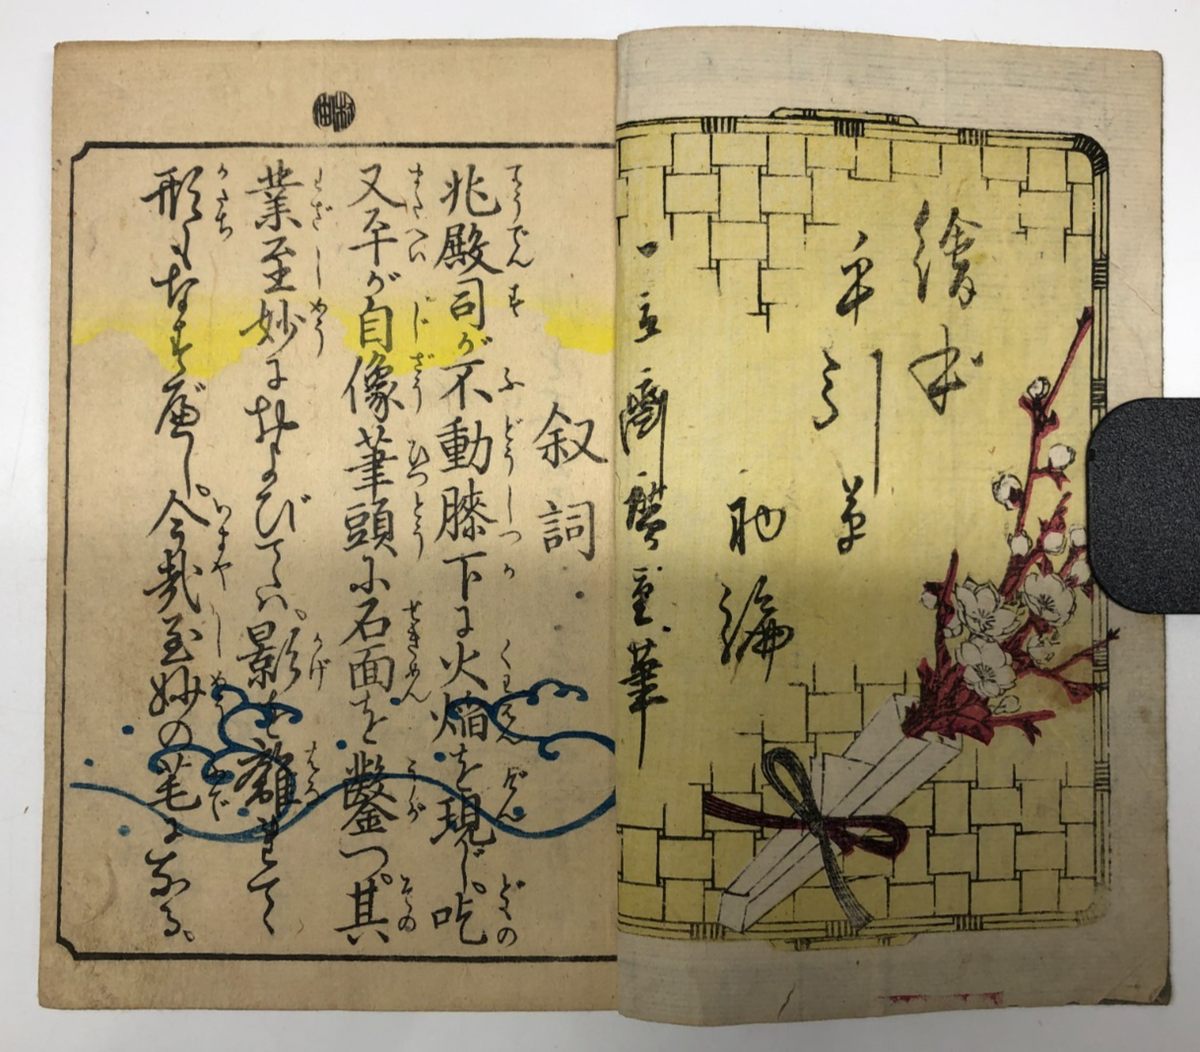 繪本
手引草
初編
一立齋廣重筆
叙詞
兆殿司が不動膝下に火焔を現じ。吃
又平が自像筆頭に石面を鑿つ。其
業至妙におよびては。影を離れて
形もなすべし。今哉至妙の筆になる。